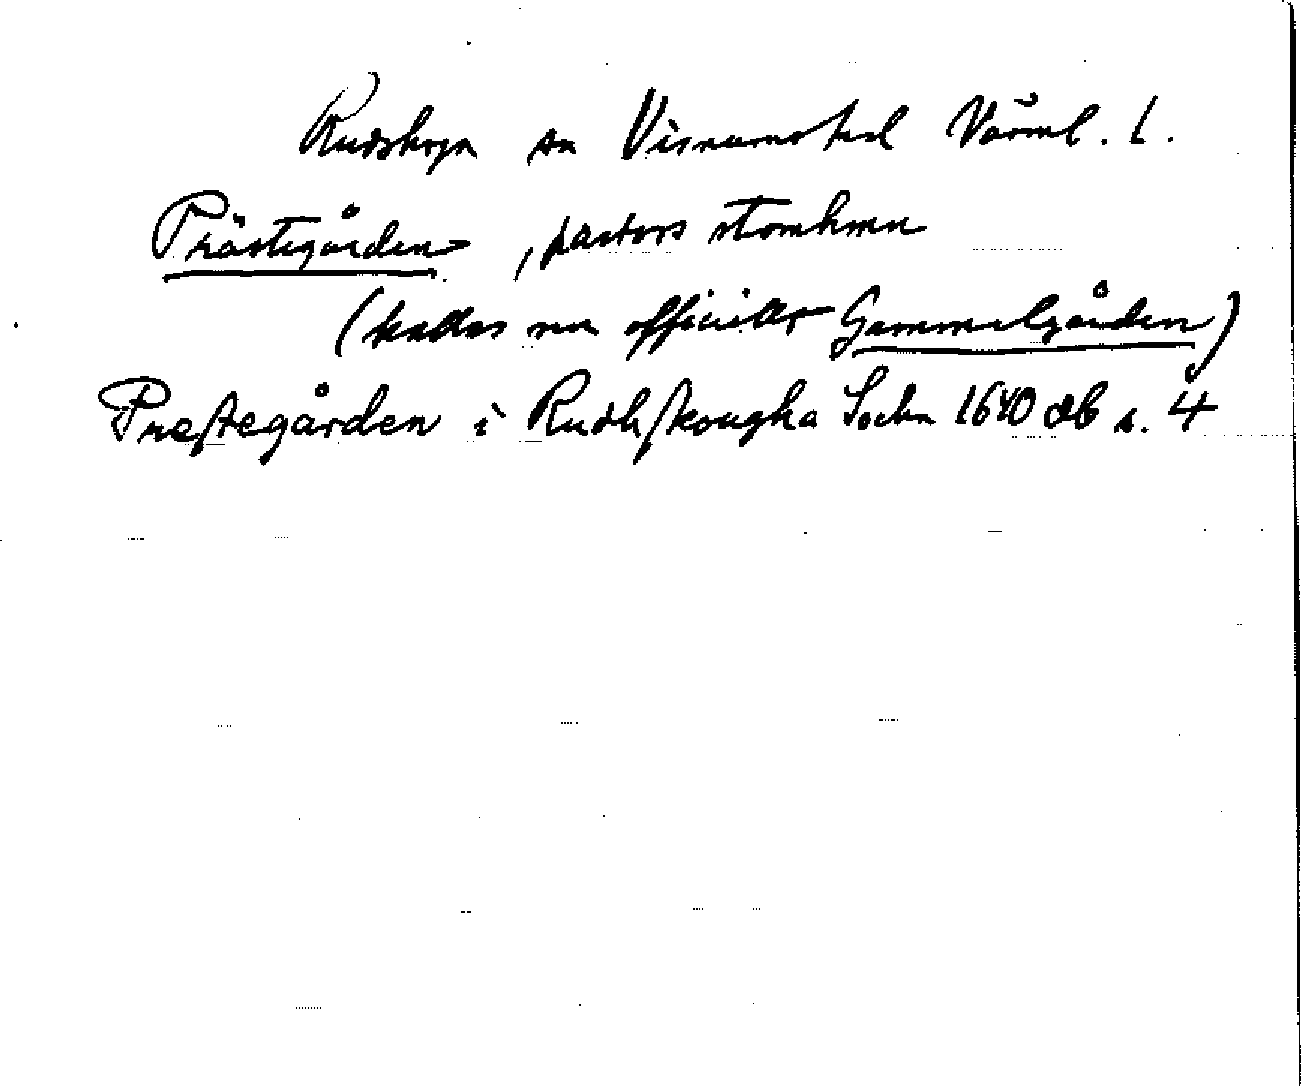 Rudskoga sn Visnums hd Värml. l.
Prästegården, pastors stomhmn
(kallas nu officiellt Gammelgården)
Prestegården i Rudhskougha Sochn 1640 db s. 4